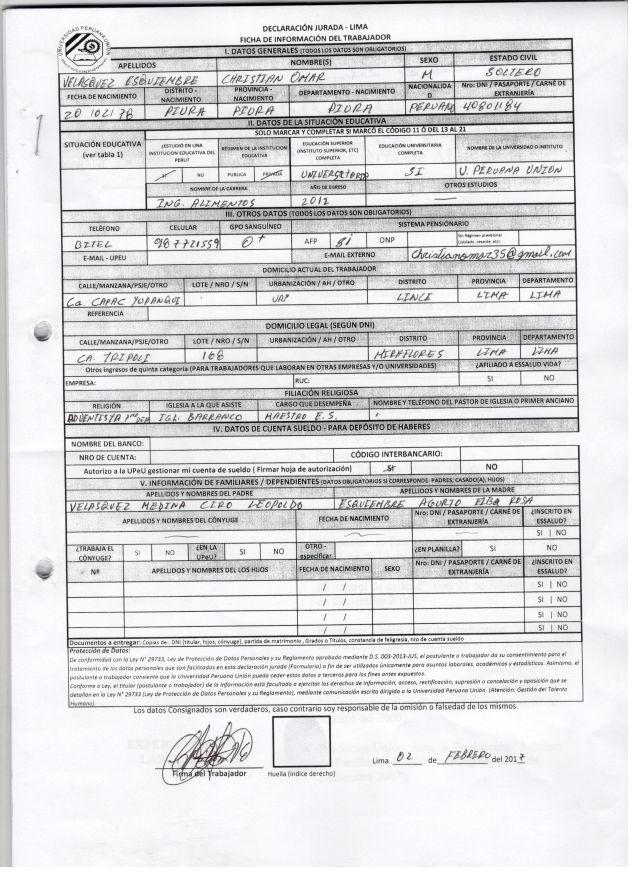 UNIVERSIDAD PERUANA UNIÓN
DECLARACIÓN JURADA - LIMA
FICHA DE INFORMACIÓN DEL TRABAJADOR
I. DATOS GENERALES (TODOS LOS DATOS SON OBLIGATORIOS)
APELLIDOS NOMBRE(S) SEXO ESTADO CIVIL
VELASQUEZ ESQUIEMBRE CHRISTIAN OMAR M SOLTERO
FECHA DE NACIMIENTO DISTRITO - NACIMIENTO PROVINCIA - NACIMIENTO DEPARTAMENTO - NACIMIENTO NACIONALIDAD Nro: DNI / PASAPORTE / CARNÉ DE EXTRANJERÍA
20/02/78 PIURA PIURA PIURA PERUANO 40801184
II. DATOS DE LA SITUACIÓN EDUCATIVA
SOLO MARCAR Y COMPLETAR SI MARCÓ EL CÓDIGO 11 Ó DEL 13 AL 21
SITUACIÓN EDUCATIVA (ver tabla 1) ¿ESTUDIÓ EN UNA INSTITUCION EDUCATIVA DEL PERU? RÉGIMEN DE LA INSTITUCION EDUCATIVA EDUCACIÓN SUPERIOR (INSTITUTO SUPERIOR, ETC) COMPLETA EDUCACIÓN UNIVERSITARIA COMPLETA NOMBRE DE LA UNIVERSIDAD O INSTITUTO
SI NO PUBLICA PRIVADA UNIVERSITARIA SI U. PERUANA UNION
NOMBRE DE LA CARRERA AÑO DE EGRESO OTROS ESTUDIOS
ING. ALIMENTOS 2012 —
III. OTROS DATOS (TODOS LOS DATOS SON OBLIGATORIOS)
TELÉFONO CELULAR GPO SANGUÍNEO SISTEMA PENSIONARIO
BITEL 987721559 O+ AFP SI ONP Sin Régimen previsional (Jubilado, cesante, etc).
E-MAIL - UPEU E-MAIL EXTERNO Christianomar35@gmail.com
DOMICILIO ACTUAL DEL TRABAJADOR
CALLE/MANZANA/PSJE/OTRO LOTE / NRO / S/N URBANIZACIÓN / AH / OTRO DISTRITO PROVINCIA DEPARTAMENTO
Ca. CAPAC YUPANQUI LINCE LIMA LIMA
REFERENCIA
DOMICILIO LEGAL (SEGÚN DNI)
CALLE/MANZANA/PSJE/OTRO LOTE / NRO / S/N URBANIZACIÓN / AH / OTRO DISTRITO PROVINCIA DEPARTAMENTO
CA. TRIPOLI 168 MIRAFLORES LIMA LIMA
Otros ingresos de quinta categoria (PARA TRABAJADORES QUE LABORAN EN OTRAS EMPRESAS Y/O UNIVERSIDADES) ¿AFILIADO A ESSALUD VIDA?
EMPRESA: RUC: SI NO
FILIACIÓN RELIGIOSA
RELIGIÓN IGLESIA A LA QUE ASISTE CARGO QUE DESEMPEÑA NOMBRE Y TELÉFONO DEL PASTOR DE IGLESIA O PRIMER ANCIANO
ADVENTISTA IGL. BARRANCO MAESTRO E.S.
IV. DATOS DE CUENTA SUELDO - PARA DEPÓSITO DE HABERES
NOMBRE DEL BANCO:
NRO DE CUENTA: CÓDIGO INTERBANCARIO:
Autorizo a la UPeU gestionar mi cuenta de sueldo ( Firmar hoja de autorización) SI NO
V. INFORMACIÓN DE FAMILIARES / DEPENDIENTES (DATOS OBLIGATORIOS SI CORRESPONDE: PADRES, CASADO(A), HIJOS)
APELLIDOS Y NOMBRES DEL PADRE APELLIDOS Y NOMBRES DE LA MADRE
VELASQUEZ MEDINA CIRO LEOPOLDO ESQUIEMBRE AGURTO ELBA ROSA
APELLIDOS Y NOMBRES DEL CÓNYUGE FECHA DE NACIMIENTO Nro: DNI / PASAPORTE / CARNÉ DE EXTRANJERÍA ¿INSCRITO EN ESSALUD?
SI | NO
¿TRABAJA EL CÓNYUGE? SI NO ¿EN LA UPeU? SI NO OTRO - especificar ¿EN PLANILLA? SI NO
Nº APELLIDOS Y NOMBRES DE LOS HIJOS FECHA DE NACIMIENTO SEXO Nro: DNI / PASAPORTE / CARNÉ DE EXTRANJERÍA ¿INSCRITO EN ESSALUD?
/ / SI | NO
/ / SI | NO
/ / SI | NO
/ / SI | NO
Documentos a entregar: Copias de: DNI (titular, hijos, cónyuge), partida de matrimonio , Grados o Títulos, constancia de feligresia, nro de cuenta sueldo
Protección de Datos:
De conformidad con la Ley N° 29733, Ley de Protección de Datos Personales y su Reglamento aprobado mediante D.S. 003-2013-JUS, el postulante o trabajador da su consentimiento para el
tratamiento de los datos personales que son facilitados en esta declaración jurada (Formulario) a fin de ser utilizados únicamente para asuntos laborales, académicos y estadísticos. Asimismo, el
postulante o trabajador consiente que la Universidad Peruana Unión pueda ceder estos datos a terceros para los fines antes expuestos.
Conforme a Ley, el titular (postulante o trabajador) de la información está facultado a ejercitar los derechos de información, acceso, rectificación, supresión o cancelación y oposición que se
detallan en la Ley N° 29733 (Ley de Protección de Datos Personales y su Reglamento), mediante comunicación escrita dirigida a la Universidad Peruana Unión. (Atención: Gestión del Talento
Humano).
Los datos Consignados son verdaderos, caso contrario soy responsable de la omisión o falsedad de los mismos.
Lima 02 de FEBRERO del 2017
Firma del Trabajador Huella (índice derecho)